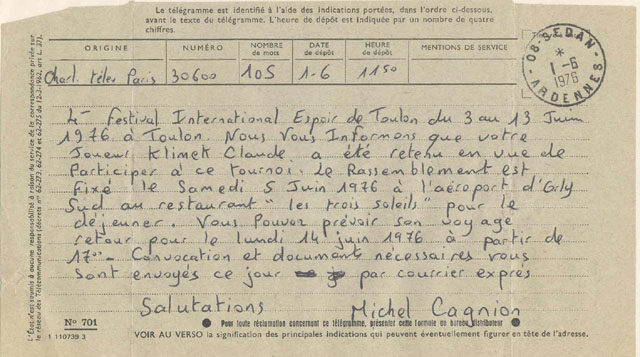 Le télégramme est identifié à l'aide des indications portées, dans l'ordre ci-dessous,
avant le texte du télégramme. L'heure de dépôt est indiquée par un nombre de quatre
chiffres.
ORIGINE NUMÉRO NOMBRE de mots DATE de dépôt HEURE de dépôt MENTIONS DE SERVICE
Charl. télex Paris 30600 105 1-6 1150
08-SEDAN-
*
1-6
1976
ARDENNES
4e Festival International Espoir de Toulon du 3 au 13 Juin
1976 à Toulon. Nous Vous Informons que votre
Joueur Klimek Claude a été retenu en vue de
Participer à ce tournoi. Le Rassemblement est
Fixé le Samedi 5 Juin 1976 à l'aéroport d'Orly
Sud au restaurant "les trois soleils" pour le
déjeuner. Vous Pouvez prévoir son voyage
retour pour le lundi 14 juin 1976 à partir de
17°° - Convocation et document nécessaires vous
Sont envoyés ce jour par courrier exprés
Salutations Michel Cagnion
N° 701
1 110739 3
Pour toute réclamation concernant ce télégramme, présenter cette formule au bureau distributeur
VOIR AU VERSO la signification des principales indications qui peuvent éventuellement figurer en tête de l'adresse.
L'État n'est soumis à aucune responsabilité à raison du service de la correspondance privée sur
le réseau des Télécommunications (décrets n° 62-273, 62-274 et 62-275 du 12-3-1962, art. L. 37).